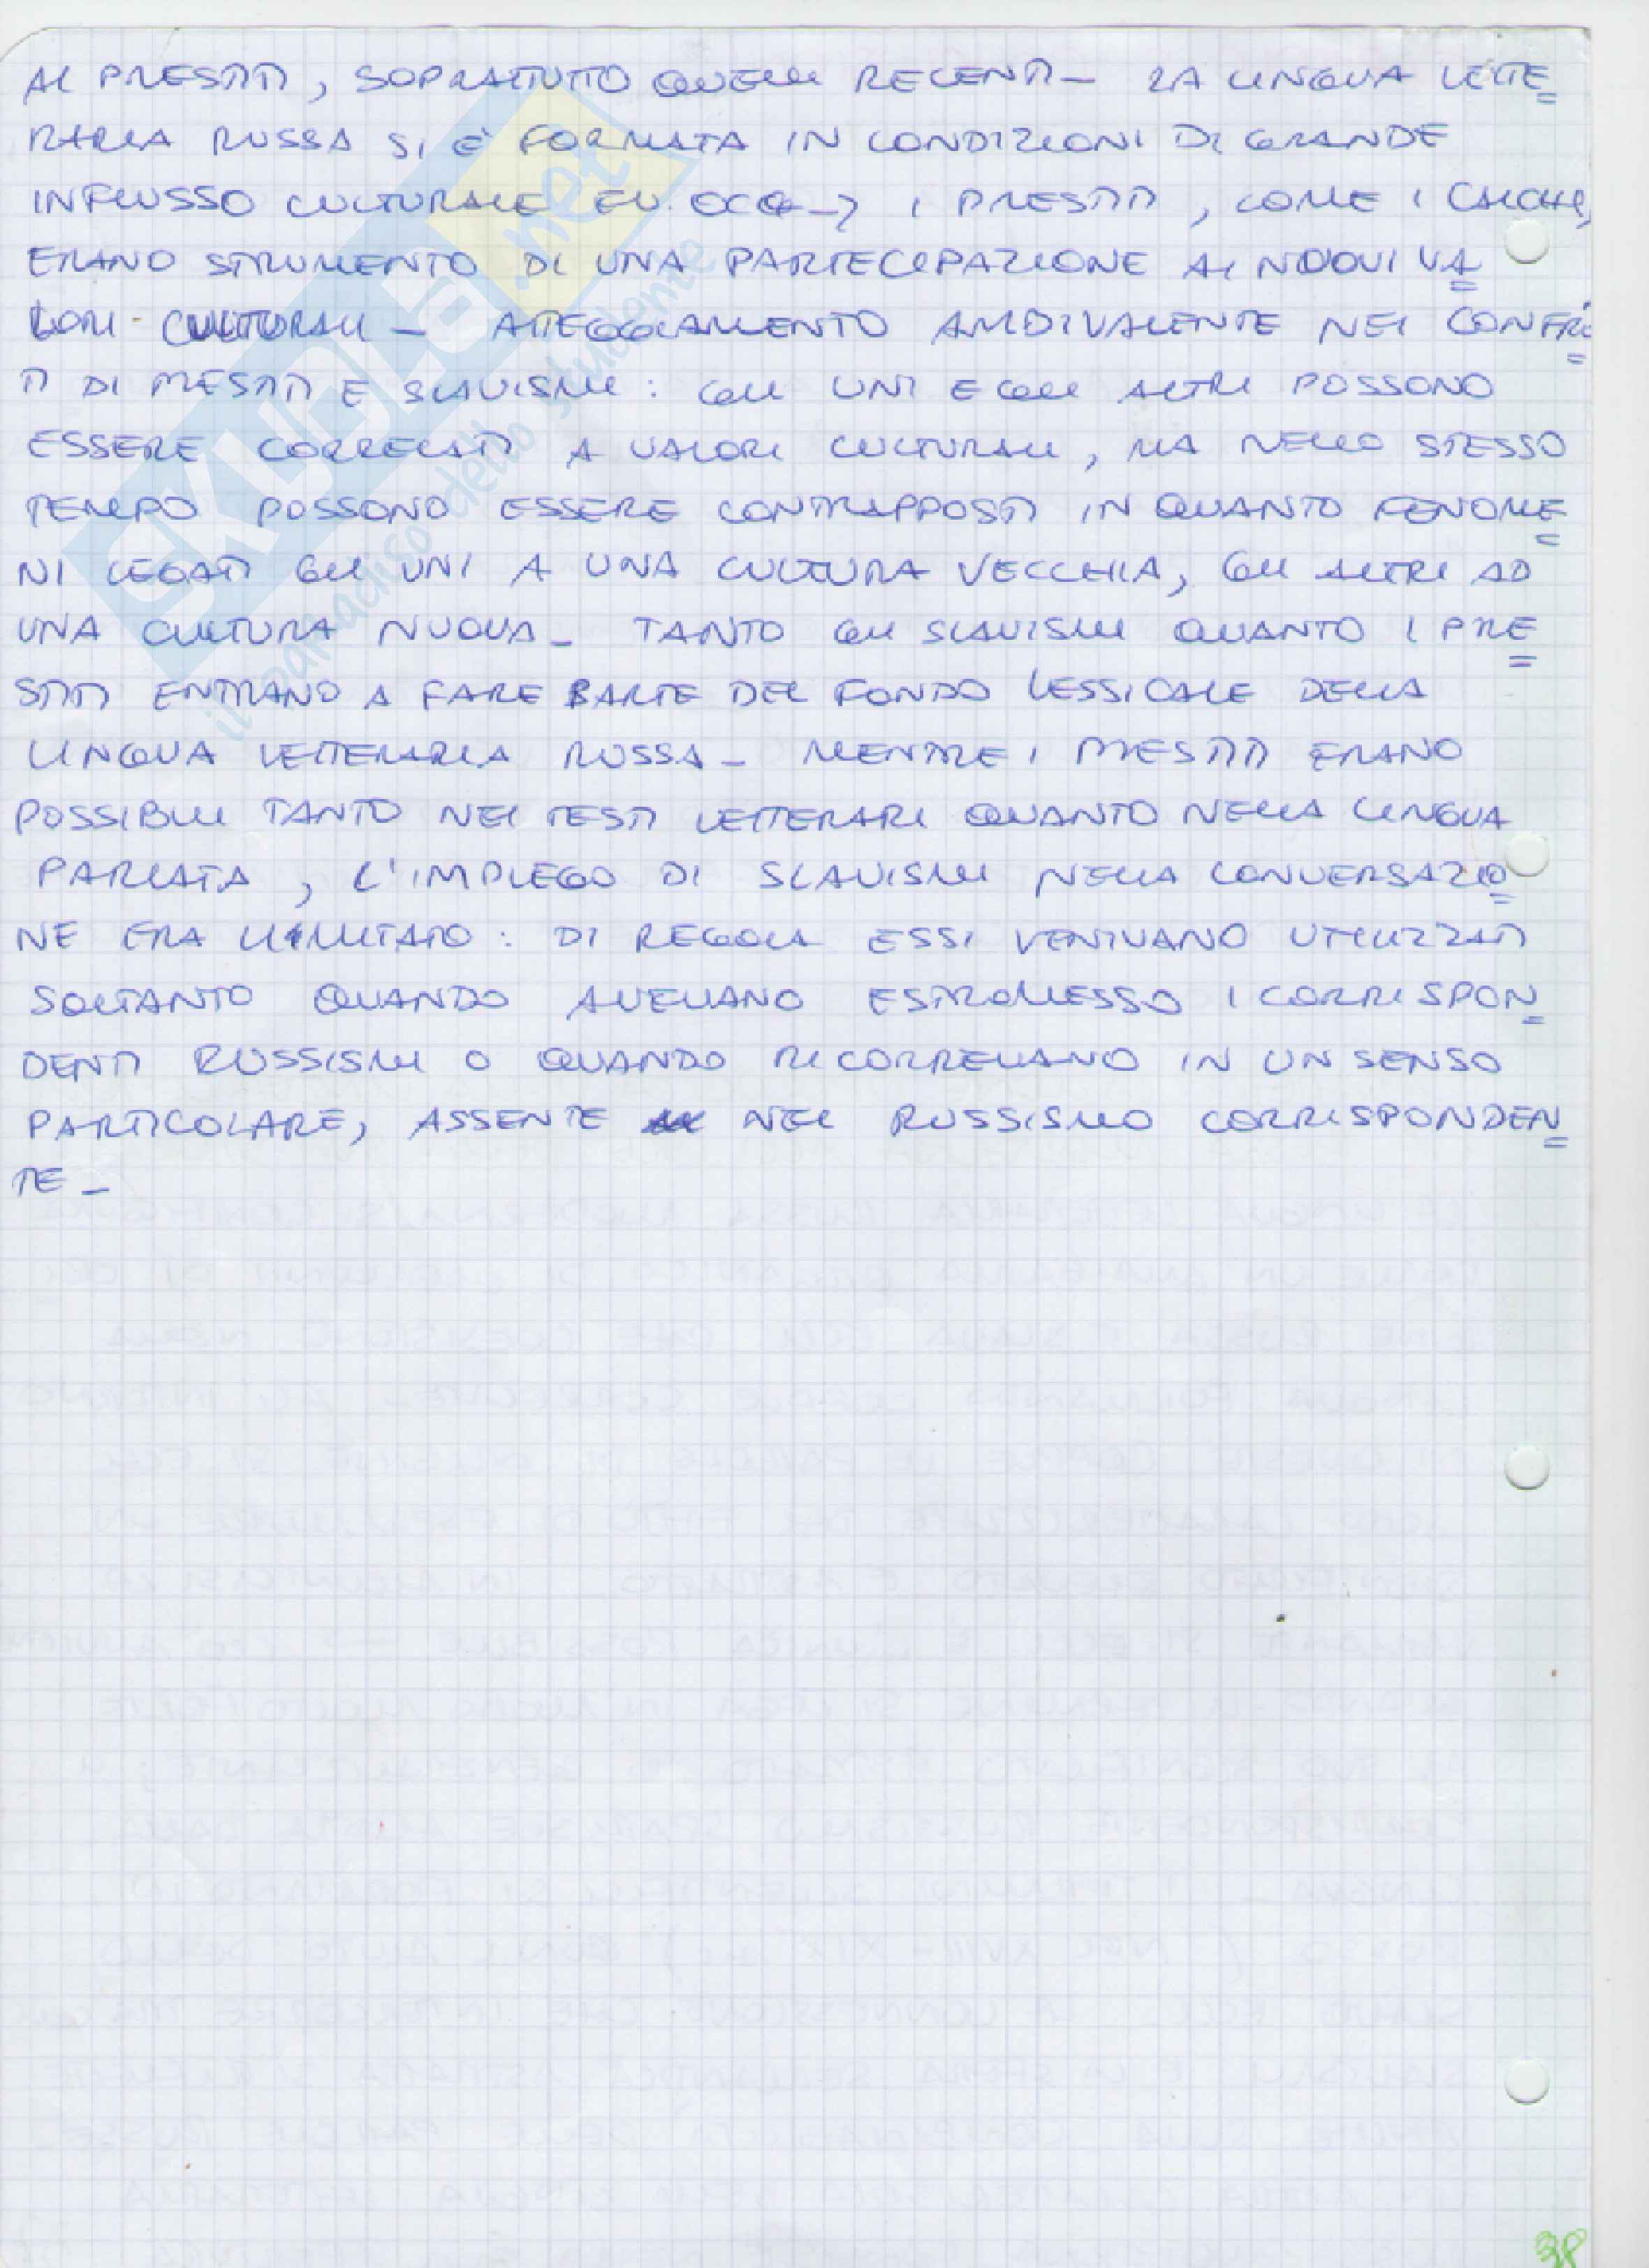 AI PRESTITI, SOPRATTUTTO QUELLI RECENTI_ LA LINGUA LETTE
RARIA RUSSA SI È FORMATA IN CONDIZIONI DI GRANDE
INFLUSSO CULTURALE EU. OCC → I PRESTITI, COME I CALCHI,
ERANO STRUMENTO DI UNA PARTECIPAZIONE AI NUOVI VA
LORI CULTURALI_ ATTEGGIAMENTO AMBIVALENTE NEI CONFRO
TI DI PRESTITI E SLAVISMI: GLI UNI E GLI ALTRI POSSONO
ESSERE CORRELATI A VALORI CULTURALI, MA NELLO STESSO
TEMPO POSSONO ESSERE CONTRAPPOSTI IN QUANTO FENOME
NI LEGATI GLI UNI A UNA CULTURA VECCHIA, GLI ALTRI AD
UNA CULTURA NUOVA_ TANTO GLI SLAVISMI QUANTO I PRE
STITI ENTRANO A FARE PARTE DEL FONDO LESSICALE DELLA
LINGUA LETTERARIA RUSSA_ MENTRE I PRESTITI ERANO
POSSIBILI TANTO NEI TESTI LETTERARI QUANTO NELLA LINGUA
PARLATA, L'IMPIEGO DI SLAVISMI NELLA CONVERSAZIO
NE ERA LIMITATO: DI REGOLA ESSI VENIVANO UTILIZZATI
SOLTANTO QUANDO AVEVANO ESTROMESSO I CORRISPON
DENTI RUSSISMI O QUANDO RICORREVANO IN UN SENSO
PARTICOLARE, ASSENTE NEL RUSSISMO CORRISPONDEN
TE_
SKUOLA.net
il paradiso dello studente
38